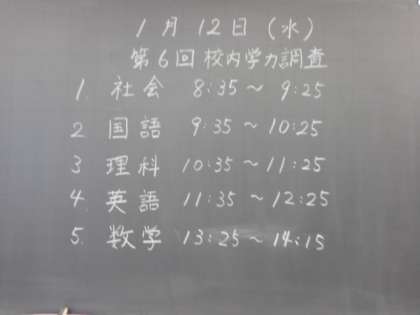 1月12日(水)
第6回 校内学力調査
1. 社会 8:35〜9:25
2 国語 9:35〜10:25
3 理科 10:35〜11:25
4. 英語 11:35〜12:25
5. 数学 13:25〜14:15